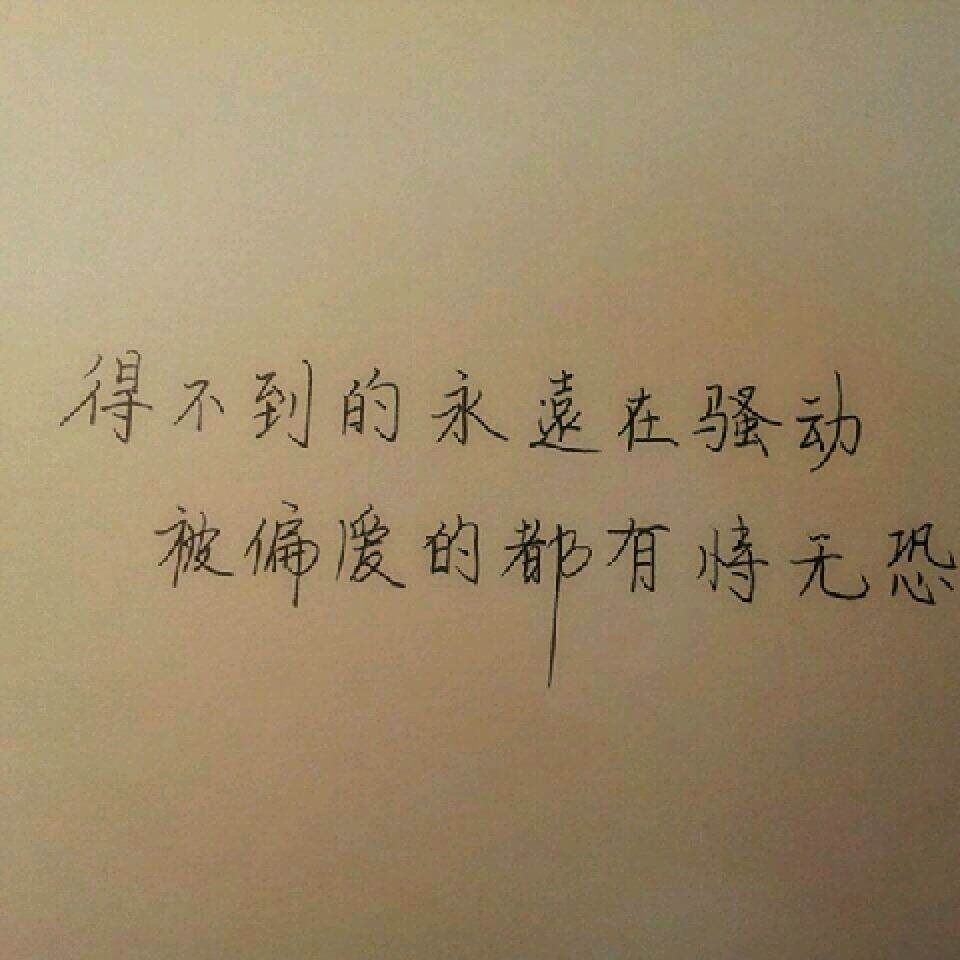 得不到的永遠在骚动
被偏爱的都有恃无恐